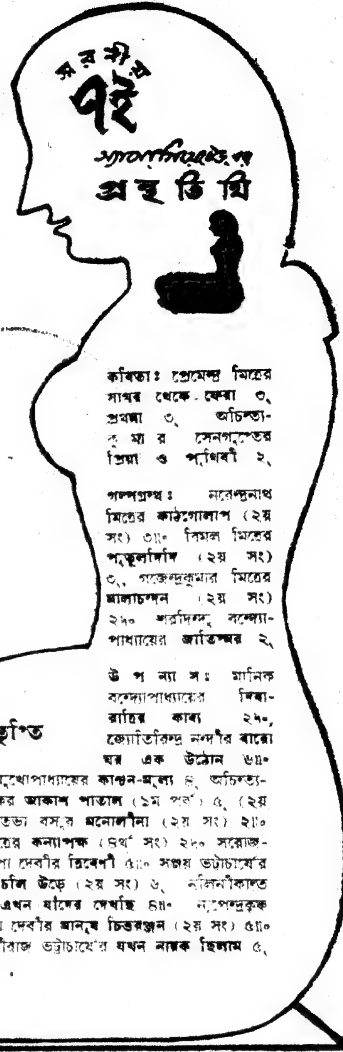 স্মরনীয়
৭ই
অ্যাসোসিয়েটেড-এর
গ্রন্থতিথি
কবিতা: প্রেমেন্দ্র মিত্রের
সাগর থেকে ফেরা ৩৲
প্রথমা ৩৲ অচিন্ত্য-
কুমার সেনগুপ্তের
প্রিয়া ও পৃথিবী ২৲
গল্পগ্রন্থ: নরেন্দ্রনাথ
মিত্রের কাঠগোলাপ (২য়
সং) ৩॥০ বিমল মিত্রের
পুতুলদিদি (২য় সং)
৩৲, গজেন্দ্রকুমার মিত্রের
মালাচন্দন (২য় সং)
২৸০ শরদিন্দু বন্দ্যো-
পাধ্যায়ের জাতিস্মর ২৲
উপন্যাস: মানিক
বন্দ্যোপাধ্যায়ের দিবা-
রাত্রির কাব্য ২৸০,
জ্যোতিরিন্দ্র নন্দীর বারো
ঘর এক উঠোন ৬॥০
তৃপ্তি
মুখোপাধ্যায়ের কাঞ্চন-মূল্য ৪৲ অচিন্ত্য-
আকাশ পাতাল (১ম পর্ব) ৫৲ (২য়
বসুর মনোলীনা (২য় সং) ২॥০
কন্যাপক্ষ (৪র্থ সং) ২৸০ সরোজ-
দেবীর ত্রিবেণী ৫॥০ সঞ্জয় ভট্টাচার্যের
উড়ে (২য় সং) ৬৲ নলিনীকান্ত
এখন যাঁদের দেখছি ৪॥০ নৃপেন্দ্রকৃষ্ণ
দেবীর মানুষ চিত্তরঞ্জন (২য় সং) ৫॥০
ধীরাজ ভট্টাচার্যের যখন নায়ক ছিলাম ৫৲